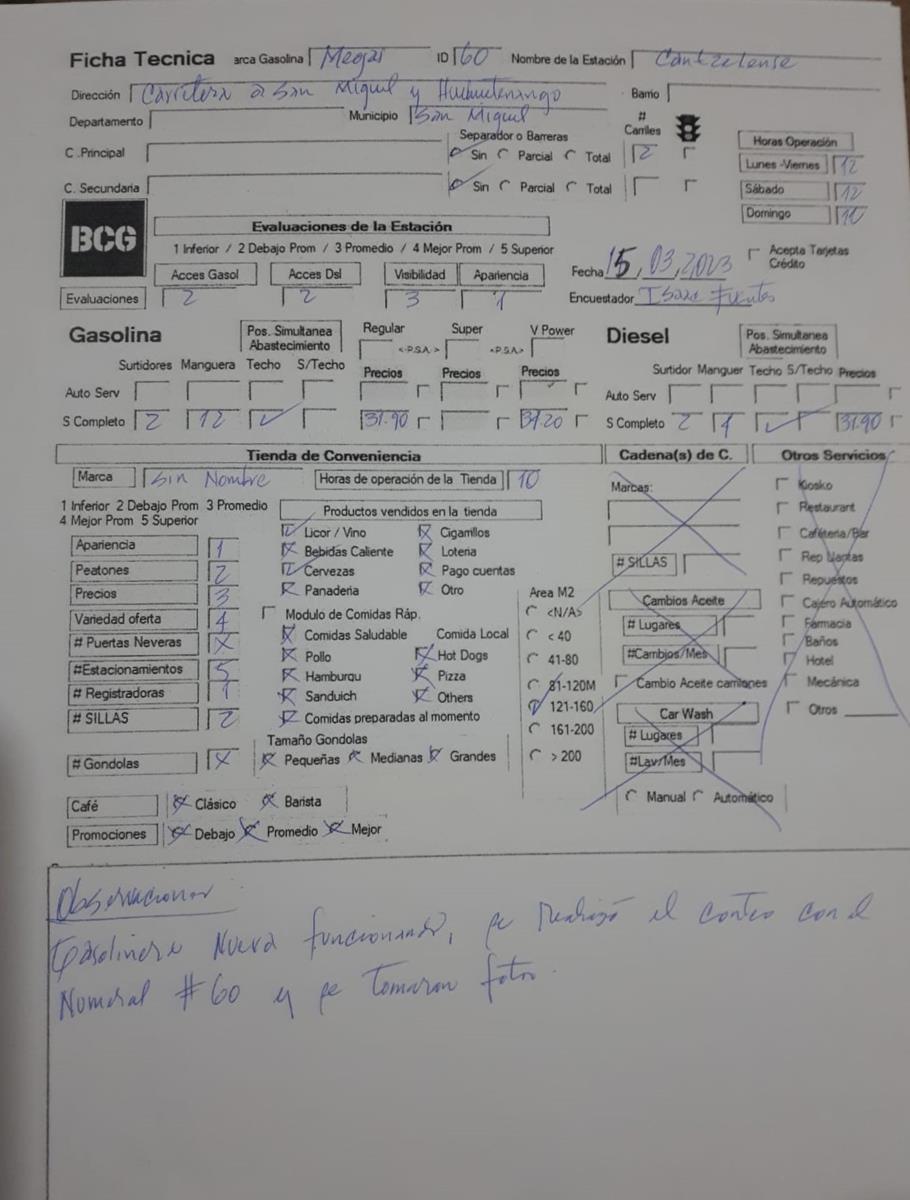 Ficha Tecnica arca Gasolina Megas ID 60 Nombre de la Estación Cantzelense
Dirección Carretera a San Miguel y Huehuetenango Barrio
Departamento Municipio San Miguel # Carriles
Separador o Barreras
C .Principal Sin Parcial Total 2
C. Secundaria Sin Parcial Total
Horas Operación
Lunes -Viernes 12
Sábado 12
Domingo 10
BCG
Evaluaciones de la Estación
1 Inferior / 2 Debajo Prom / 3 Promedio / 4 Mejor Prom / 5 Superior
Acces Gasol Acces Dsl Visibilidad Apariencia
Evaluaciones 2 2 3 1
Fecha 15, 03, 2023 Acepta Tarjetas Crédito
Encuestador Fuentes
Gasolina Pos. Simultanea Abastecimiento Regular <-P.S.A.-> Super <-P.S.A.-> V Power
Surtidores Manguera Techo S/Techo Precios Precios Precios
Auto Serv
S Completo 2 12 ✓ 31.90 34.20
Diesel Pos. Simultanea Abastecimiento
Surtidor Manguer Techo S/Techo Precios
Auto Serv
S Completo 2 4 ✓ 31.90
Tienda de Conveniencia
Marca Sin Nombre Horas de operación de la Tienda 10
1 Inferior 2 Debajo Prom 3 Promedio
4 Mejor Prom 5 Superior
Apariencia 1
Peatones 2
Precios 3
Variedad oferta 4
# Puertas Neveras X
#Estacionamientos 5
# Registradoras 1
# SILLAS 2
# Gondolas X
Productos vendidos en la tienda
Licor / Vino Cigarrillos
Bebidas Caliente Loteria
Cervezas Pago cuentas
Panaderia Otro
Modulo de Comidas Ráp.
Comidas Saludable Comida Local
Pollo Hot Dogs
Hamburqu Pizza
Sanduich Others
Comidas preparadas al momento
Tamaño Gondolas
Pequeñas Medianas Grandes
Area M2
<N/A>
< 40
41-80
81-120M
121-160
161-200
> 200
Café Clásico Barista
Promociones Debajo Promedio Mejor
Cadena(s) de C.
Marcas:
# SILLAS
Cambios Aceite
# Lugares
#Cambios/Mes
Cambio Aceite camiones
Car Wash
# Lugares
#Lav/Mes
Manual Automático
Otros Servicios
Kiosko
Restaurant
Cafeteria/Bar
Rep Llantas
Repuestos
Cajero Automático
Farmacia
Baños
Hotel
Mecánica
Otros
Observaciones
Gasolinera Nueva funcionando, se realizó el conteo con el
Numeral #60 y se tomaron fotos.